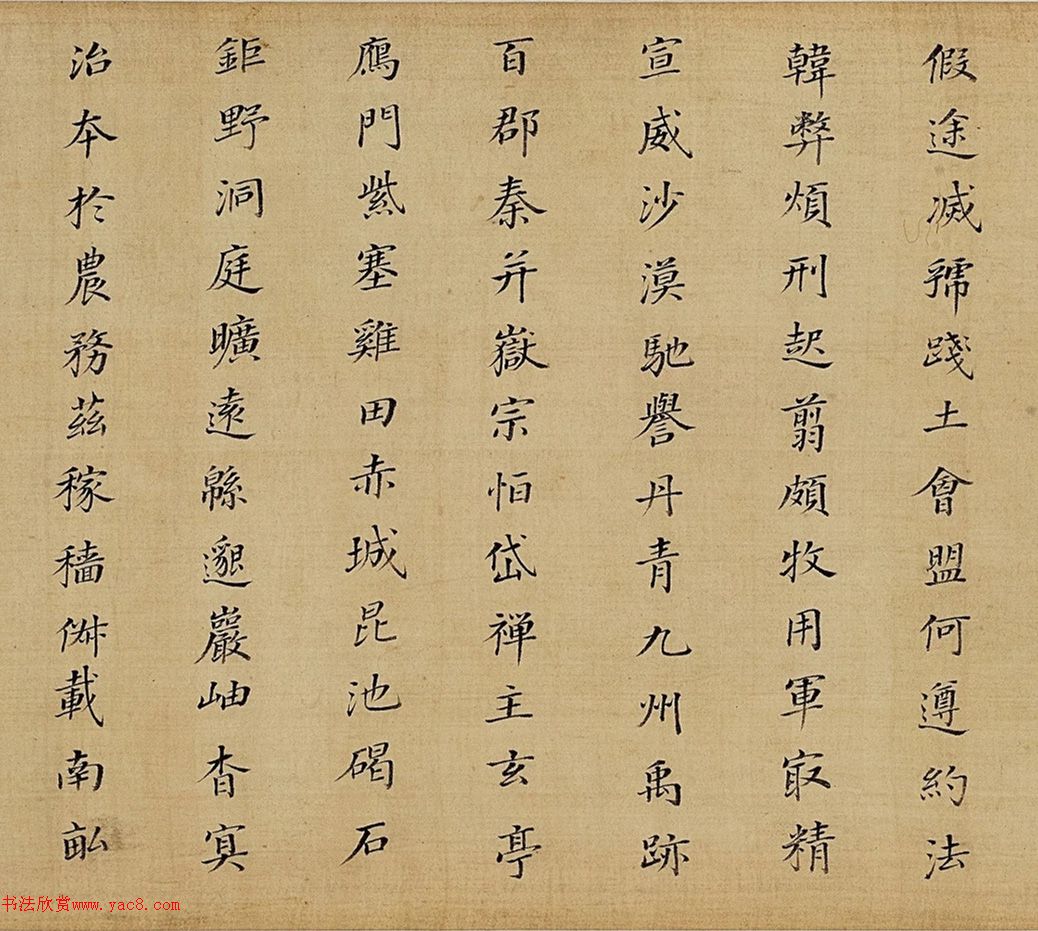 假途滅虢踐土會盟何遵約法
韓弊煩刑起翦頗牧用軍冣精
宣威沙漠馳譽丹青九州禹跡
百郡秦并嶽宗恒岱禪主玄亭
鴈門紫塞雞田赤城昆池碣石
鉅野洞庭曠遠緜邈巖岫杳冥
治本於農務茲稼穡俶載南畝
书法欣赏www.yac8.com